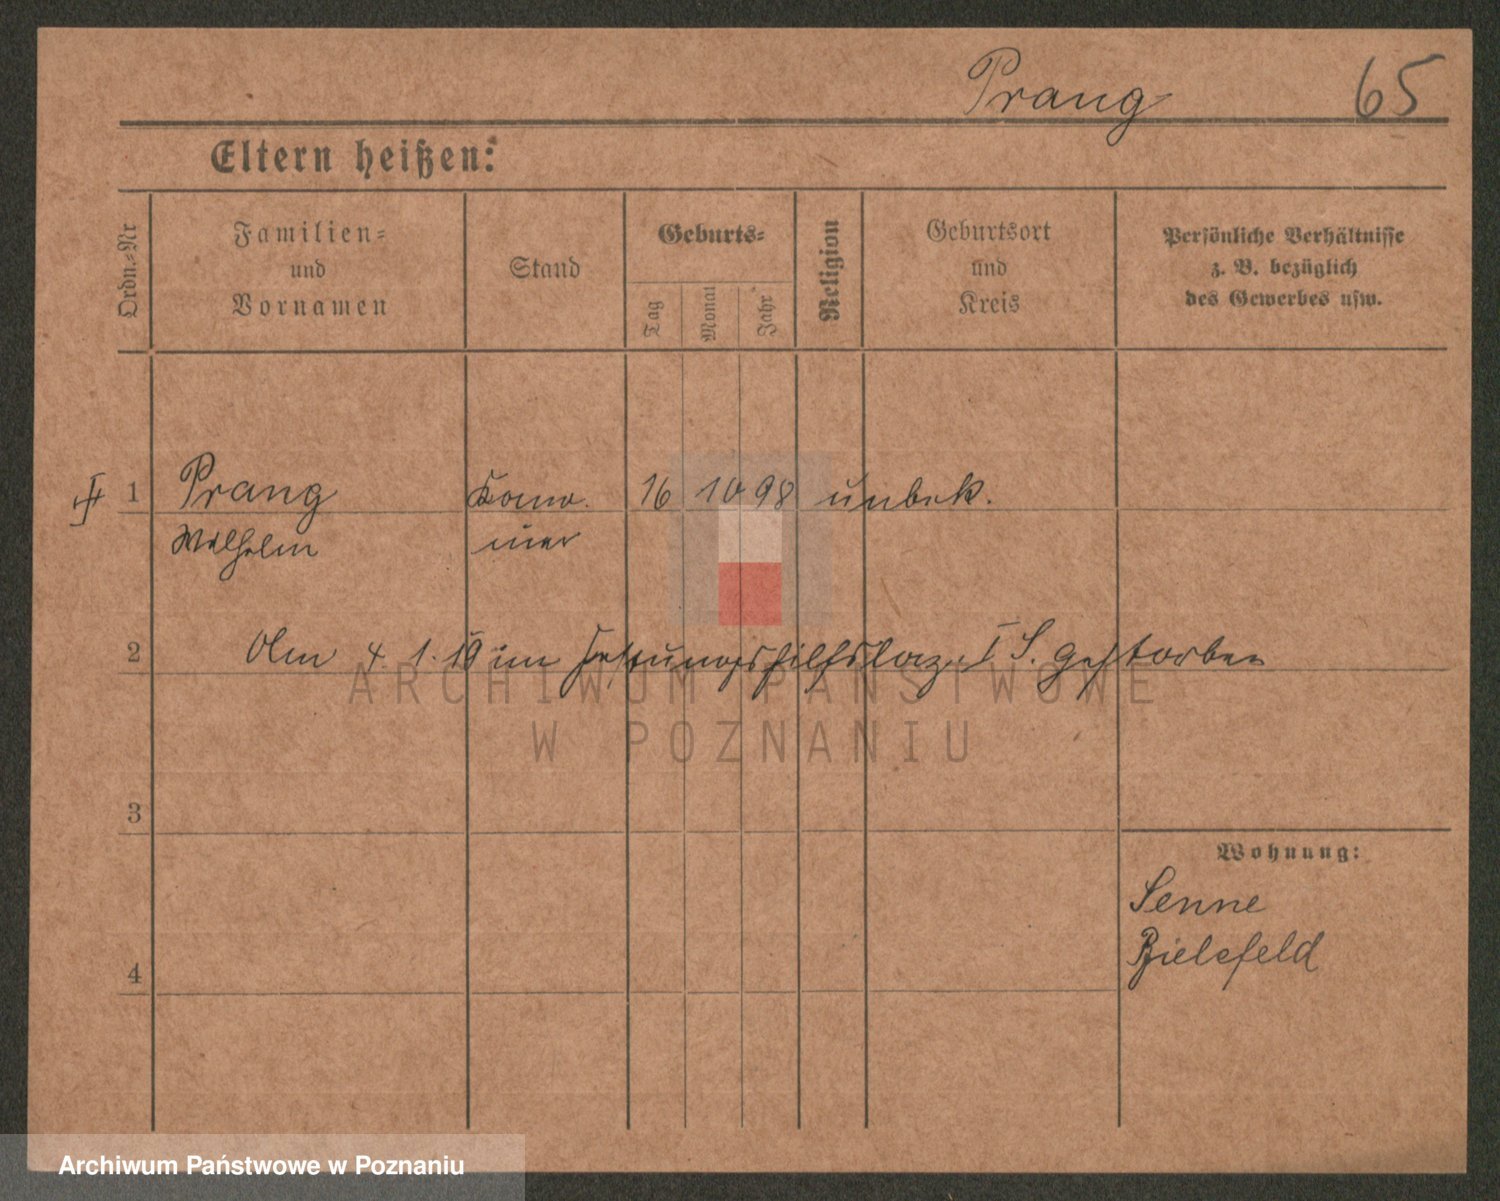 Prang 65
Eltern heißen:
Ordn.-Nr
Familien-
und
Vornamen
Stand
Geburts-
Tag
Monat
Jahr
Religion
Geburtsort
und
Kreis
Persönliche Verhältnisse
z. B. bezüglich
des Gewerbes usw.
1 Prang 16 10 98 unbek.
Wilhelm
2 Am 4. 1. im Festungshilfslaz. I S. gestorben
3
4
Wohnung:
Senne
Bielefeld
ARCHIWUM PAŃSTWOWE
W POZNANIU
Archiwum Państwowe w Poznaniu